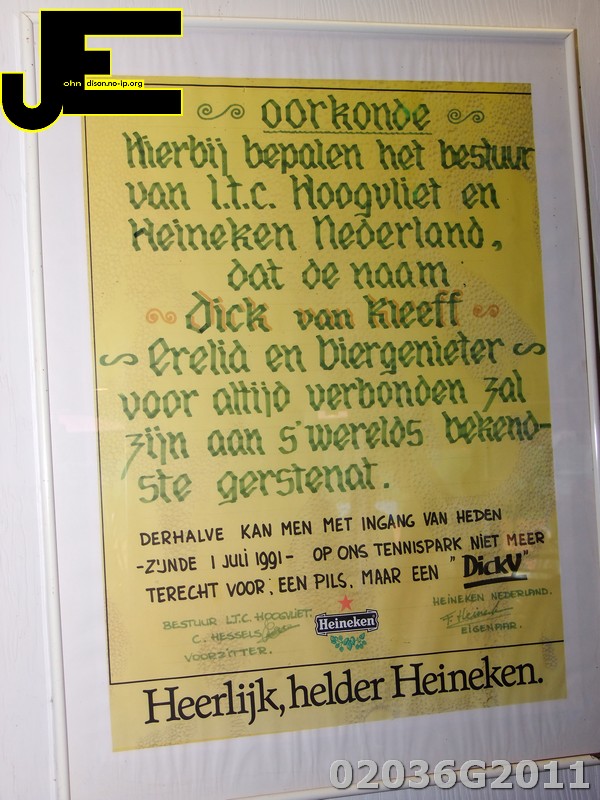 JE
ohn dison.no-ip.org
oorkonde
Hierbij bepalen het bestuur
van l.t.c. Hoogvliet en
Heineken Nederland,
dat de naam
Dick van Kleeff
Erelid en Biergenieter
voor altijd verbonden zal
zijn aan s'werelds bekend-
ste gerstenat.
DERHALVE KAN MEN MET INGANG VAN HEDEN
-ZIJNDE 1 JULI 1991- OP ONS TENNISPARK NIET MEER
TERECHT VOOR, EEN PILS, MAAR EEN "DickV"
BESTUUR L.T.C. HOOGVLIET.
C. HESSELS
VOORZITTER.
Heineken
HEINEKEN NEDERLAND.
EIGENAAR.
Heerlijk, helder Heineken.
02036G2011